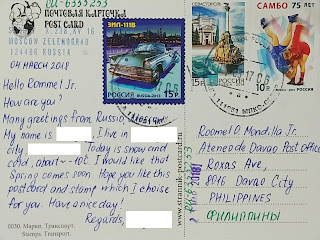 RU-6333253
ПОЧТОВАЯ КАРТОЧКА
POST CARD
MOSCOW ZELENOGRAD
124489 16
04 MARCH 2018
Hello Rommel Jr.
How are you?
Many greetings from Russia
My name is , I live in
city . Today is snow and
cold, about -10C. I would like that
Spring comes soon. Hope you like this
postcard and stamp which I choise
for you. Have a nice day!
Regards,
0030. Марки. Транспорт.
Stamps. Transport.
www.strannik-postcard.ru
ЗИМ-111В
РОССИЯ
RUSSIA·2013
15р
СЕВАСТОПОЛЬ
15р
РОССИЯ
САМБО 75 ЛЕТ
10р
РОССИЯ
Roomel O. Mondilla Jr.
Ateneo de Davao Post office
Roxas Ave,
8016 Davao City
PHILIPPINES
ФИЛИППИНЫ